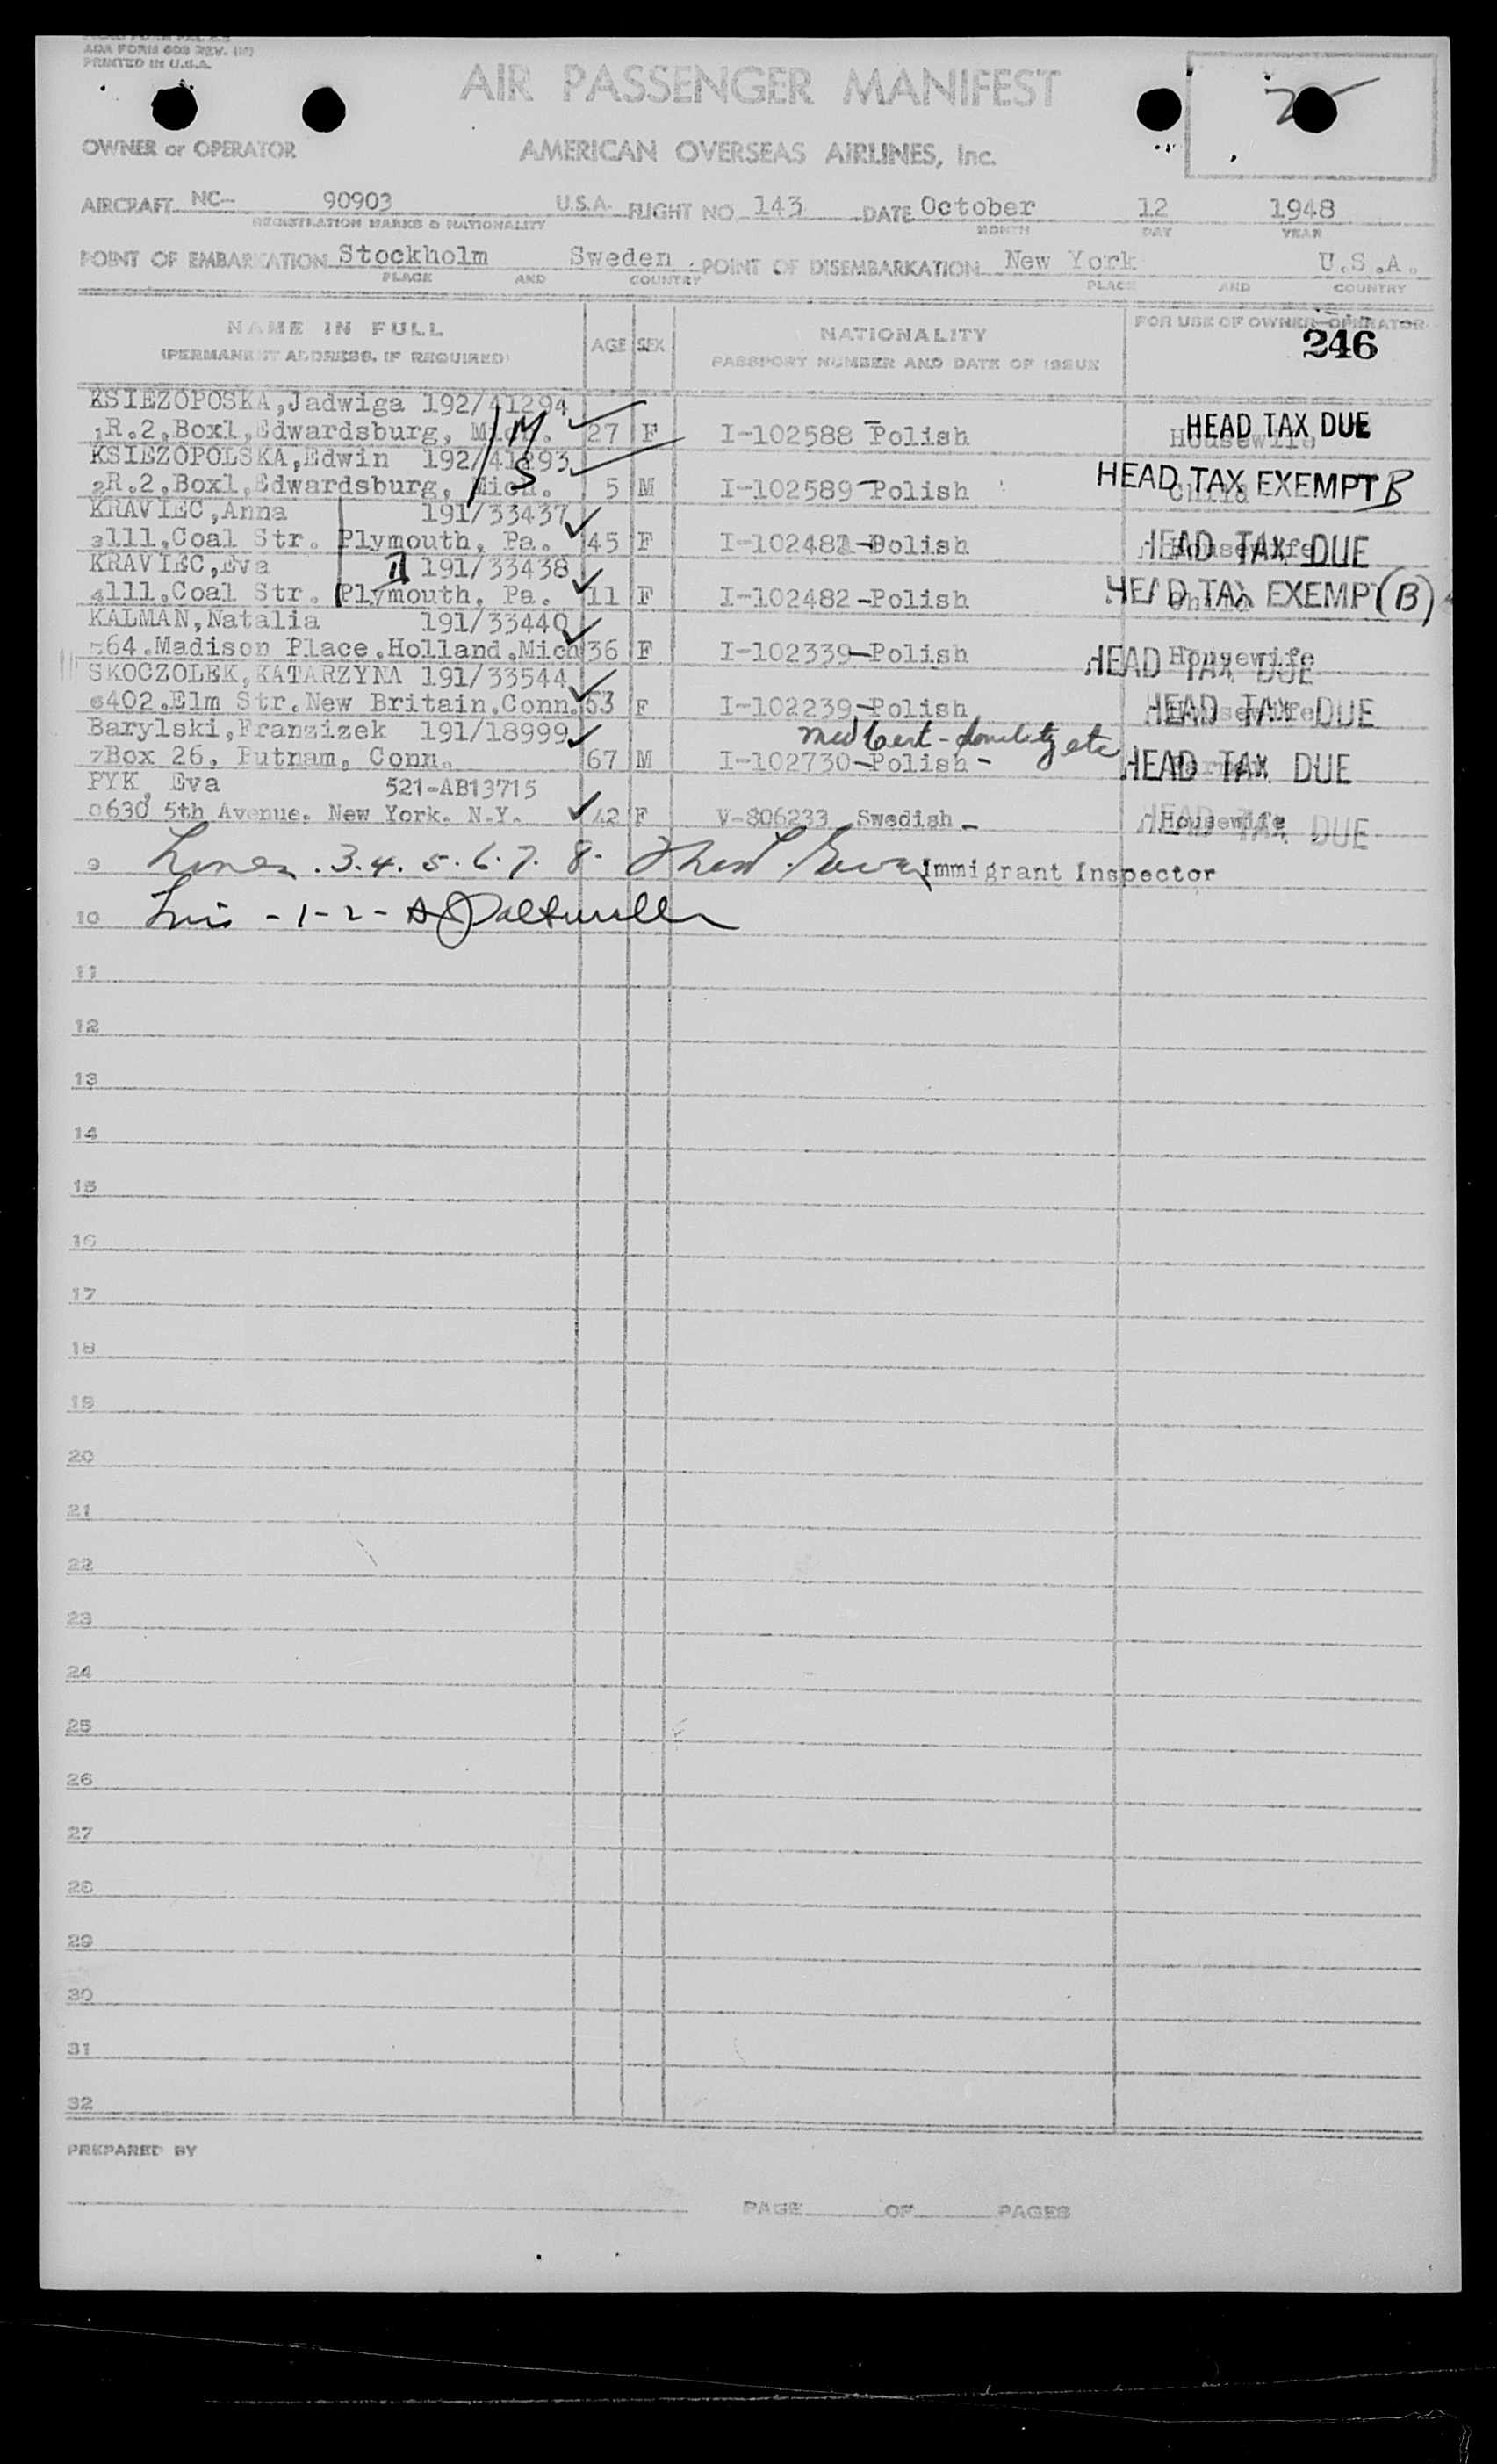 ADA FORM 608 REV.
PRINTED IN U.S.A.
AIR PASSENGER MANIFEST
OWNER or OPERATOR AMERICAN OVERSEAS AIRLINES, Inc.
AIRCRAFT NC- 90903 U.S.A. FLIGHT NO. 143 DATE October 12 1948
REGISTRATION MARKS & NATIONALITY MONTH DAY YEAR
POINT OF EMBARKATION Stockholm Sweden. POINT OF DISEMBARKATION New York U.S.A.
PLACE AND COUNTRY PLACE AND COUNTRY
NAME IN FULL AGE SEX NATIONALITY FOR USE OF OWNER-OPERATOR
(PERMANENT ADDRESS, IF REQUIRED) PASSPORT NUMBER AND DATE OF ISSUE 246
KSIEZOPOSKA,Jadwiga 192/41294
1R.2,Box1,Edwardsburg, Mich. 27 F I-102588 Polish Housewife HEAD TAX DUE
KSIEZOPOLSKA,Edwin 192/41293
M
S
2R.2,Box1,Edwardsburg, Mich. 5 M I-102589 Polish Child HEAD TAX EXEMPT B
KRAVIEC,Anna 191/33437
3111,Coal Str. Plymouth, Pa. 45 F I-102481-Polish Housewife HEAD TAX DUE
KRAVIEC,Eva II 191/33438
4111,Coal Str. Plymouth, Pa. 11 F I-102482-Polish Child HEAD TAX EXEMPT (B)
KALMAN,Natalia 191/33440
564.Madison Place,Holland,Mich 36 F I-102339-Polish Housewife HEAD TAX DUE
SKOCZOLEK,KATARZYNA 191/33544
6402.Elm Str.New Britain,Conn. 53 F I-102239-Polish Housewife HEAD TAX DUE
Barylski,Franzizek 191/18999 med Cert - etc
7Box 26, Putnam, Conn. 67 M I-102730-Polish- HEAD TAX DUE
PYK, Eva 521-AB13715
8630 5th Avenue. New York. N.Y. 42 F V-806233 Swedish - Housewife HEAD TAX DUE
9 Lines .3.4.5.6.7.8. Immigrant Inspector
10 -1-2-
11
12
13
14
15
16
17
18
19
20
21
22
23
24
25
26
27
28
29
30
31
32
PREPARED BY
PAGE OF PAGES